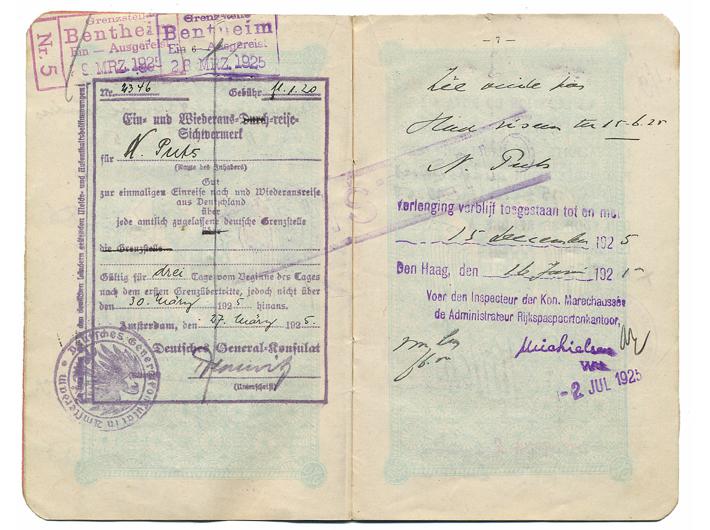 Nr. 5
Grenzstelle
Bentheim
Ein — Ausgereist
9 MRZ. 1925
Grenzstelle
Bentheim
Ein — Ausgereist
28 MRZ. 1925
Nr. 2346 Gebühr: fl. 1.20
Ein- und Wiederaus-Durch-reise-
Sichtvermerk
für N. Puts
(Name des Inhabers)
Gut
zur einmaligen Einreise nach und Wiederausreise
aus Deutschland
über
jede amtlich zugelassene deutsche Grenzstelle
die Grenzstelle
Gültig für drei Tage vom Beginne des Tages
nach dem ersten Grenzübertritte, jedoch nicht über
den 30. März 1925 hinaus.
Amsterdam, den 27. März 1925.
Deutsches General-Konsulat
(Unterschrift)
Deutsches General-Konsulat in Amsterdam
— 7 —
Zie vierde pas
15-6-25
N. Puts
Verlenging verblijf toegestaan tot en met
15 december 1925
Den Haag, den 16 Juni 192
Voor den Inspecteur der Kon. Marechaussée
de Administrateur Rijkspaspoortenkantoor,
Michielsen
-2 JUL 1925